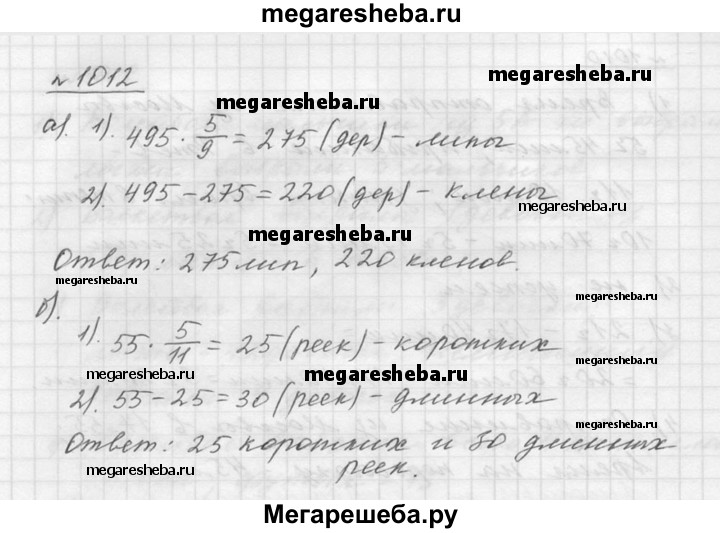 megaresheba.ru
№ 1012
megaresheba.ru
megaresheba.ru
а). 1). 495 · 5/9 = 275 (дер) - липы
2). 495 - 275 = 220 (дер) - клены
megaresheba.ru
megaresheba.ru
Ответ: 275 лип, 220 кленов.
megaresheba.ru
megaresheba.ru
б).
1). 55 · 5/11 = 25 (реек) - коротких
megaresheba.ru
megaresheba.ru
2). 55 - 25 = 30 (реек) - длинных
megaresheba.ru
Ответ: 25 коротких и 30 длинных
реек.
megaresheba.ru
Мегарешеба.ру